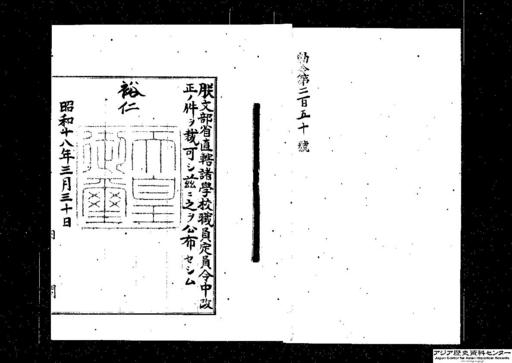 勅令第二百五十號
朕文部省直轄諸學校職員定員令中改
正ノ件ヲ裁可シ茲ニ之ヲ公布セシム
裕仁
天皇御璽
昭和十八年三月三十日
アジア歴史資料センター
Japan Center for Asian Historical Records